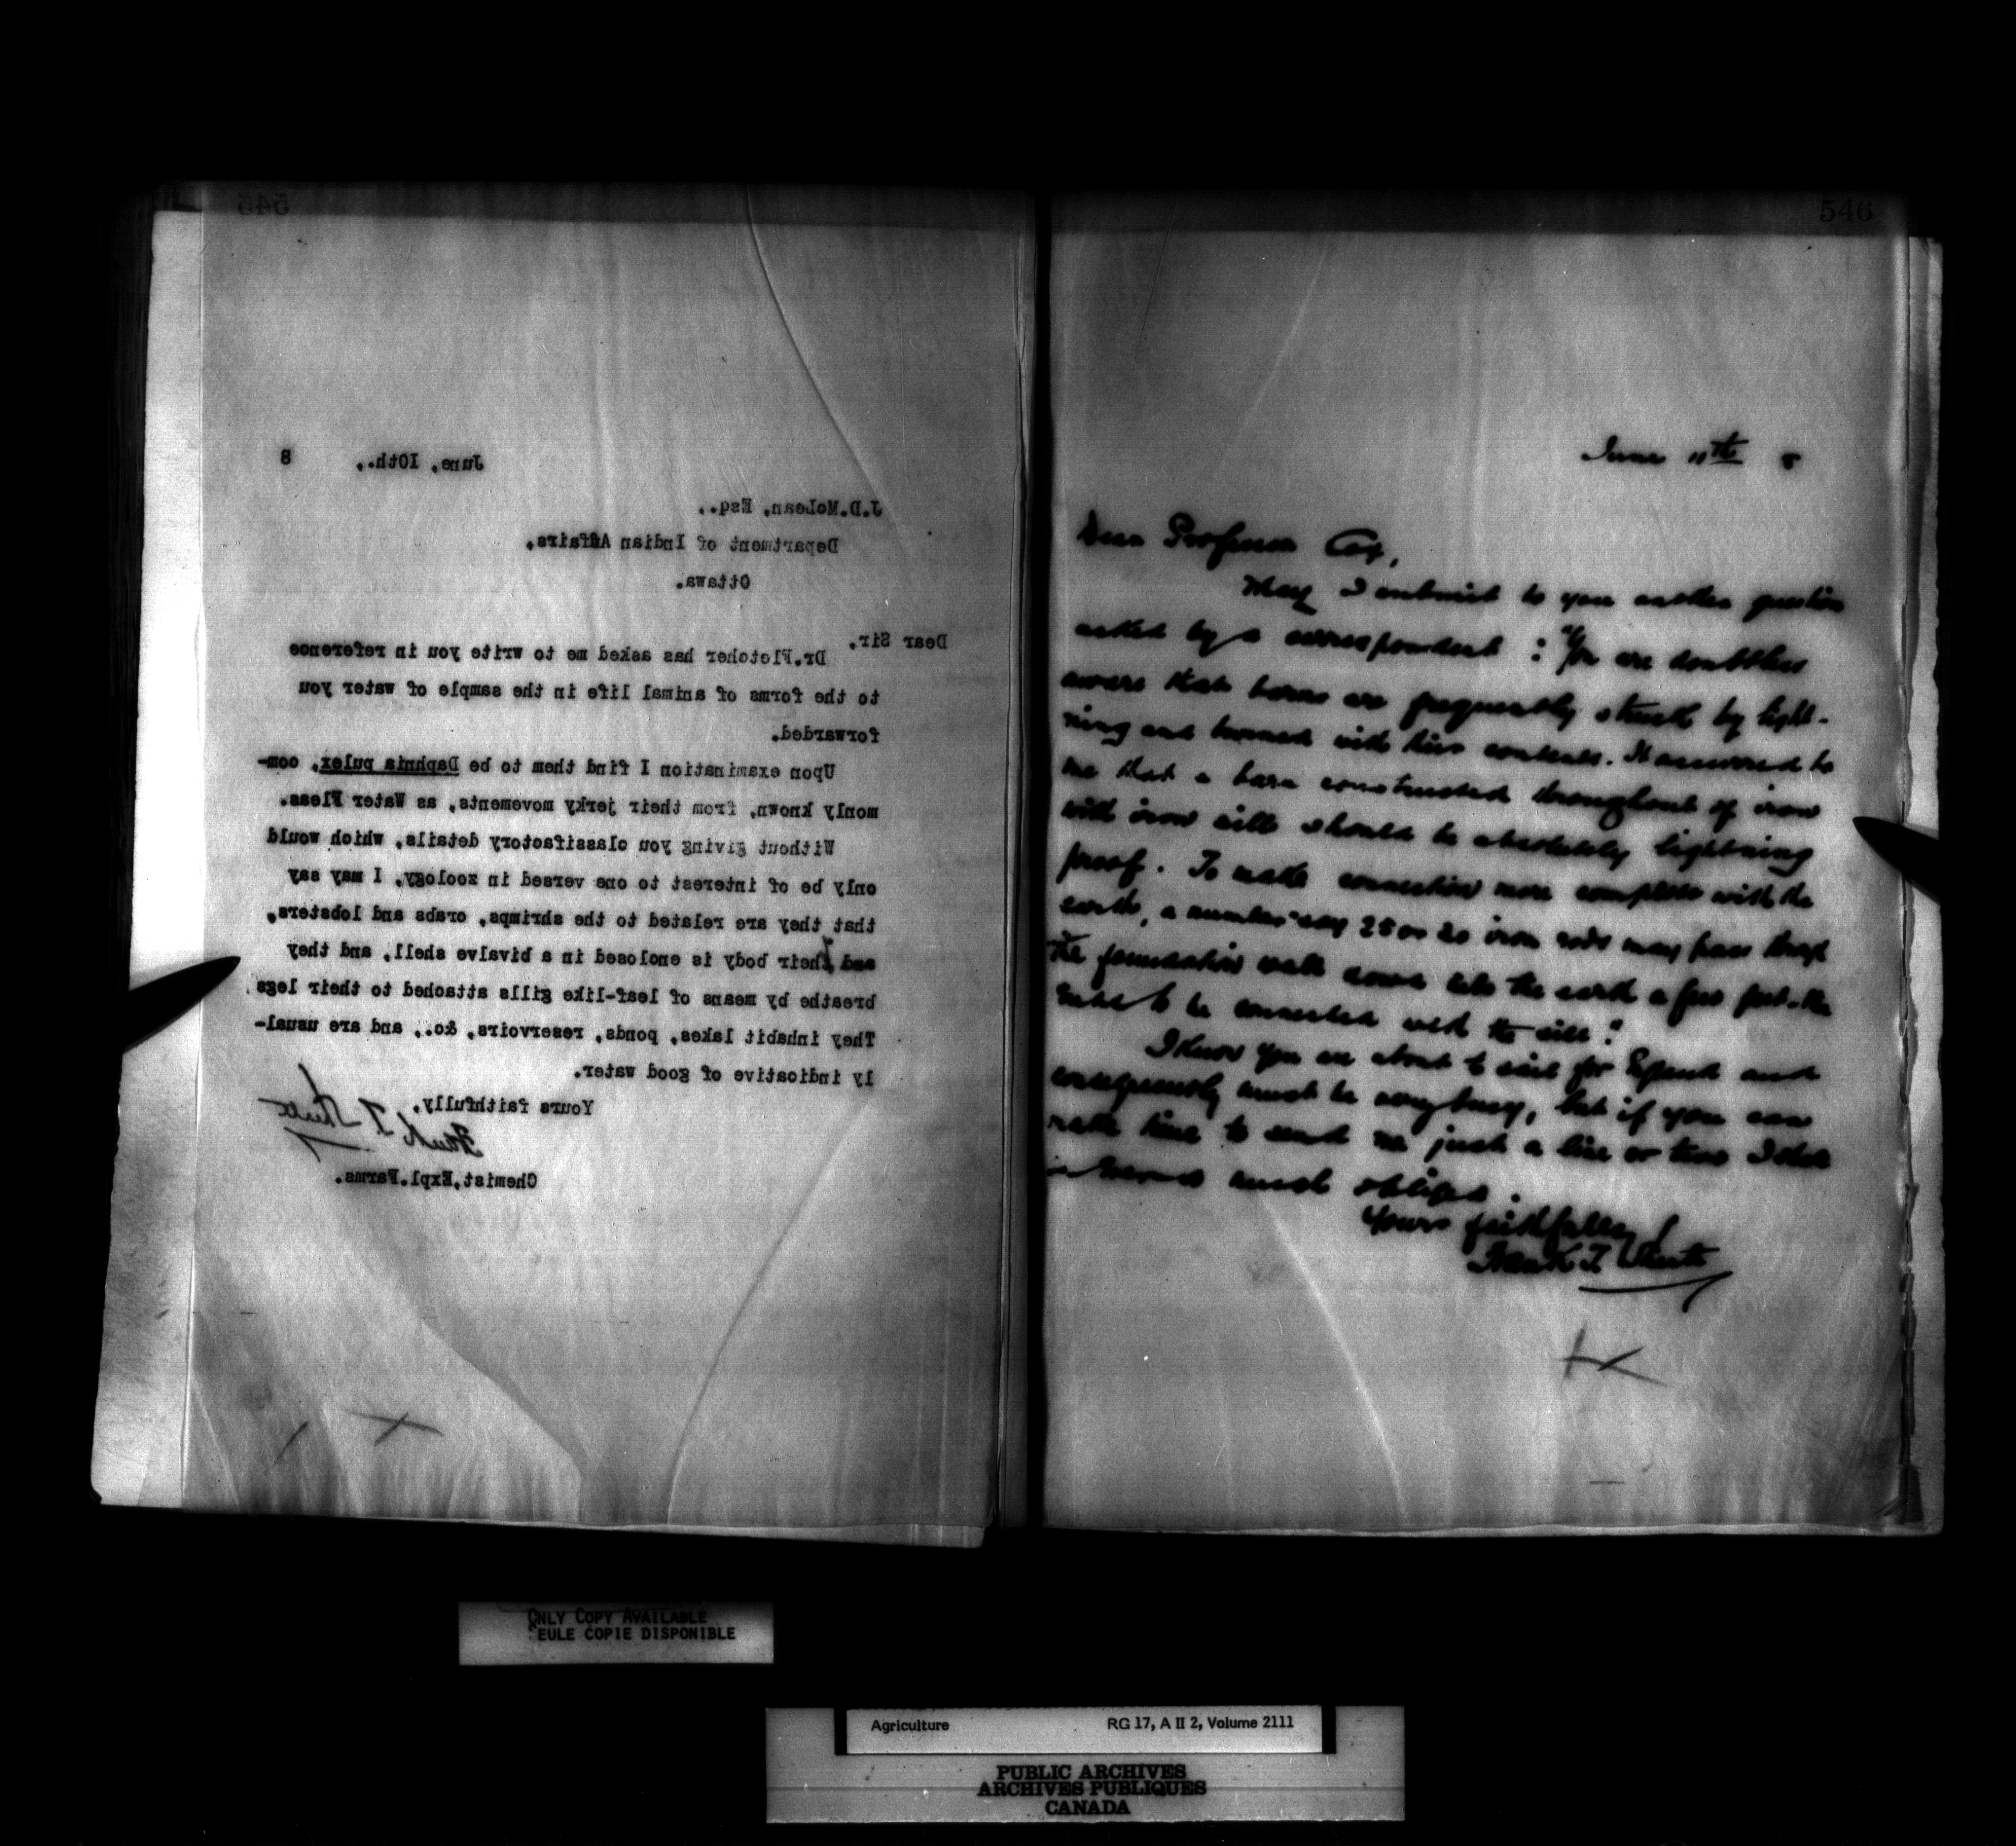 545
June, 10th., 8
J.D.McLean, Esq.,
Department of Indian Affairs,
Ottawa.
Dear Sir,
Dr.Fletcher has asked me to write you in reference
to the forms of animal life in the sample of water you
forwarded.
Upon examination I find them to be Daphnia pulex, com-
monly known, from their jerky movements, as Water Fleas.
Without giving you classifactory details, which would
only be of interest to one versed in zoology, I may say
that they are related to the shrimps, crabs and lobsters,
and their body is enclosed in a bivalve shell, and they
breathe by means of leaf-like gills attached to their legs.
They inhabit lakes, ponds, reservoirs, &c., and are usual-
ly indicative of good water.
Yours faithfully,
Frank T. Shutt
Chemist,Expl.Farms.
546
June 11th 8
Dear Professor Cox,
May I submit to you another question
asked by a correspondent : "You are doubtless
aware that barns are frequently struck by light-
ning and burned with their contents. It occurred to
me that a barn constructed throughout of iron
with iron sills should be absolutely lightning
proof. To make connection more complete with the
earth, a number say 25 or 20 iron rods may pass through
the foundation walls down into the earth a few feet - the
to be connected with the sills."
I know you are about to sail for England and
consequently must be very busy, but if you can
make time to send me just a line or two I shall
be much obliged.
Yours faithfully
Frank T. Shutt
ONLY COPY AVAILABLE
SEULE COPIE DISPONIBLE
Agriculture RG 17, A II 2, Volume 2111
PUBLIC ARCHIVES
ARCHIVES PUBLIQUES
CANADA